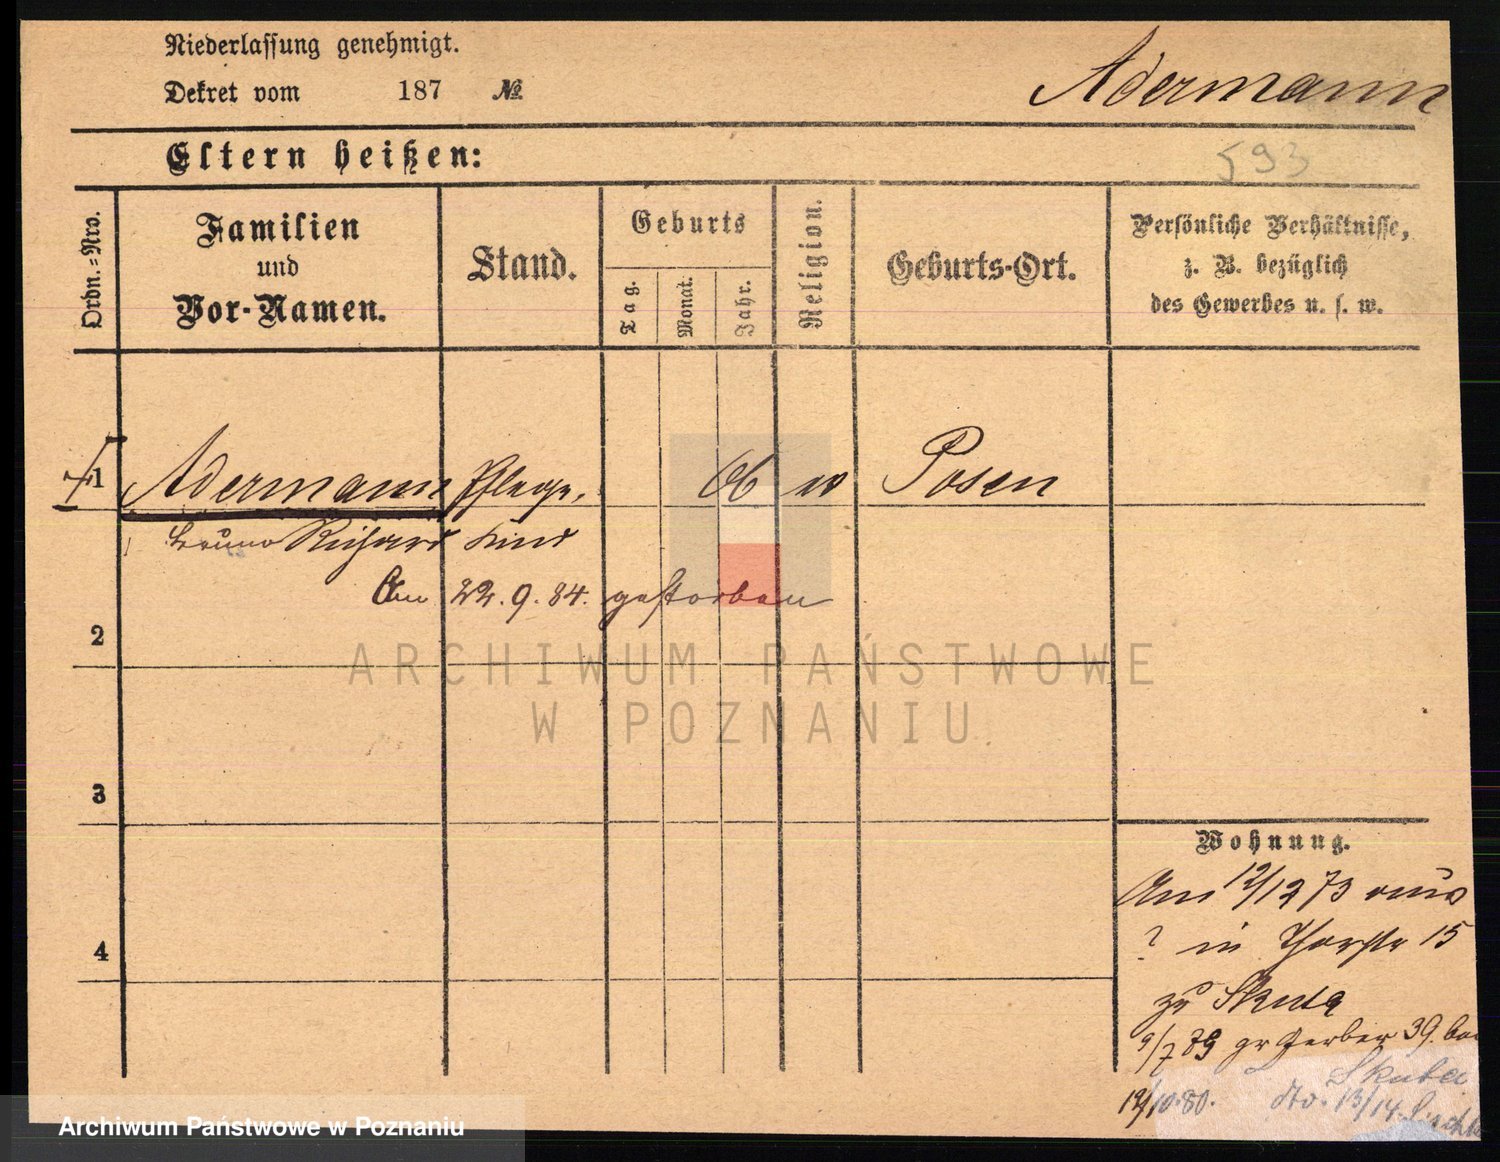 Niederlassung genehmigt.
Adermann
Dekret vom 187 №
Eltern heißen:
593
Ordn.-Nro.
Familien
und
Vor-Namen.
Stand.
Geburts
Tag.
Monat.
Jahr.
Religion.
Geburts-Ort.
Persönliche Verhältnisse,
z. B. bezüglich
des Gewerbes u. s. w.
1 Adermann Pflege- Posen
Bruno Richard Kind
Am 22.9.84. gestorben
2
ARCHIWUM PAŃSTWOWE
W POZNANIU
3
Wohnung.
Am 12/12 73 aus
? in Thorstr 15
4
zu Skuta
9/7 89 gr Gerber 39. bei
Skuba
12/10.80. dto. 13/14
Archiwum Państwowe w Poznaniu